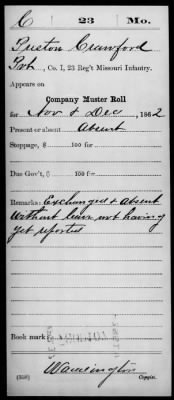 C 23 Mo.
Preston Crawford
Pvt., Co. I, 23 Reg't Missouri Infantry.
Appears on
Company Muster Roll
for Nov & Dec, 1862
Present or absent Absent
Stoppage, $ 100 for
Due Gov't, $ 100 for
Remarks: Exchanged & absent
without leave not having
yet reported
Book mark:
(358) Copyist.